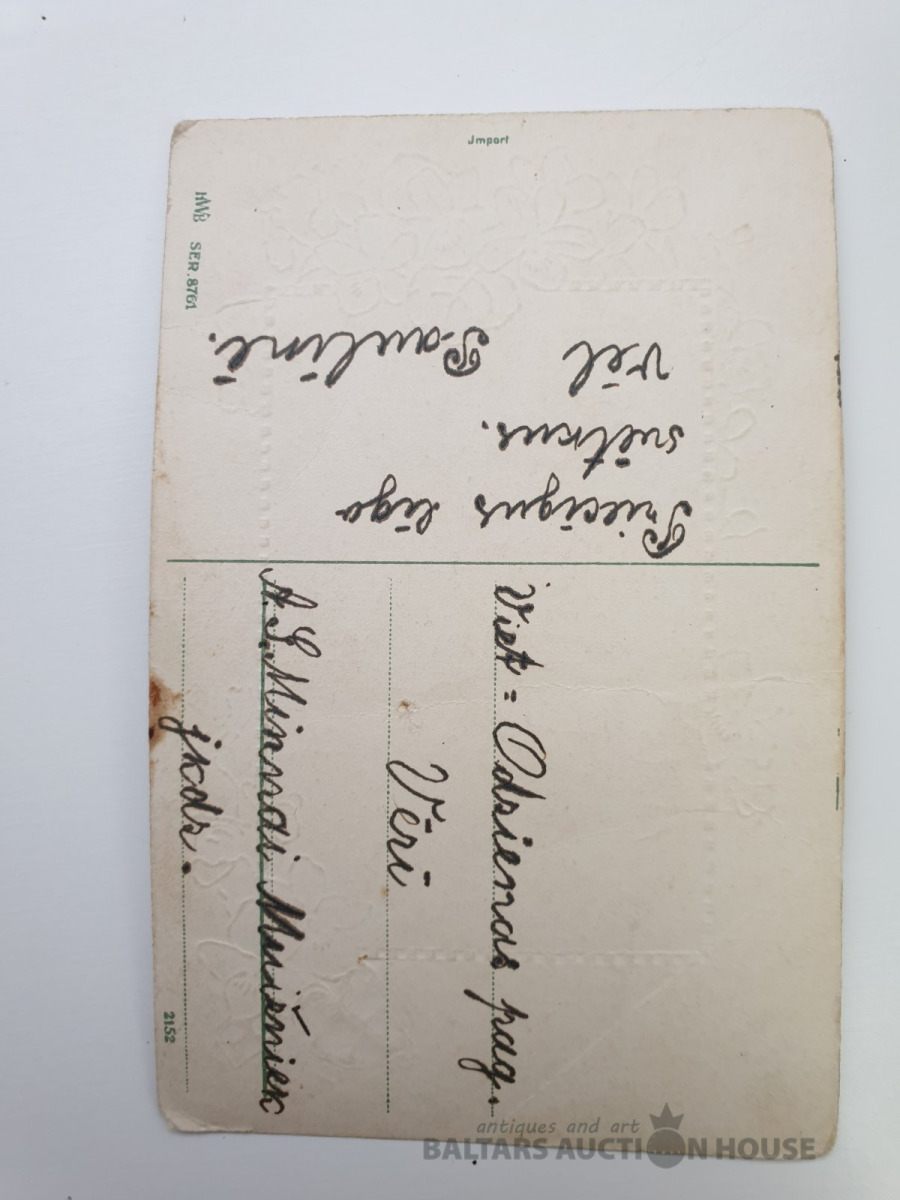 Jmport
HWB SER. 8761
Priecigus līgo
svētkus.
Vēl Paulinē.
Viet = Odsienas pag.
Vēri
Minnai Muižniek
jkdz.
2152
antiques and art
BALTARS AUCTION HOUSE